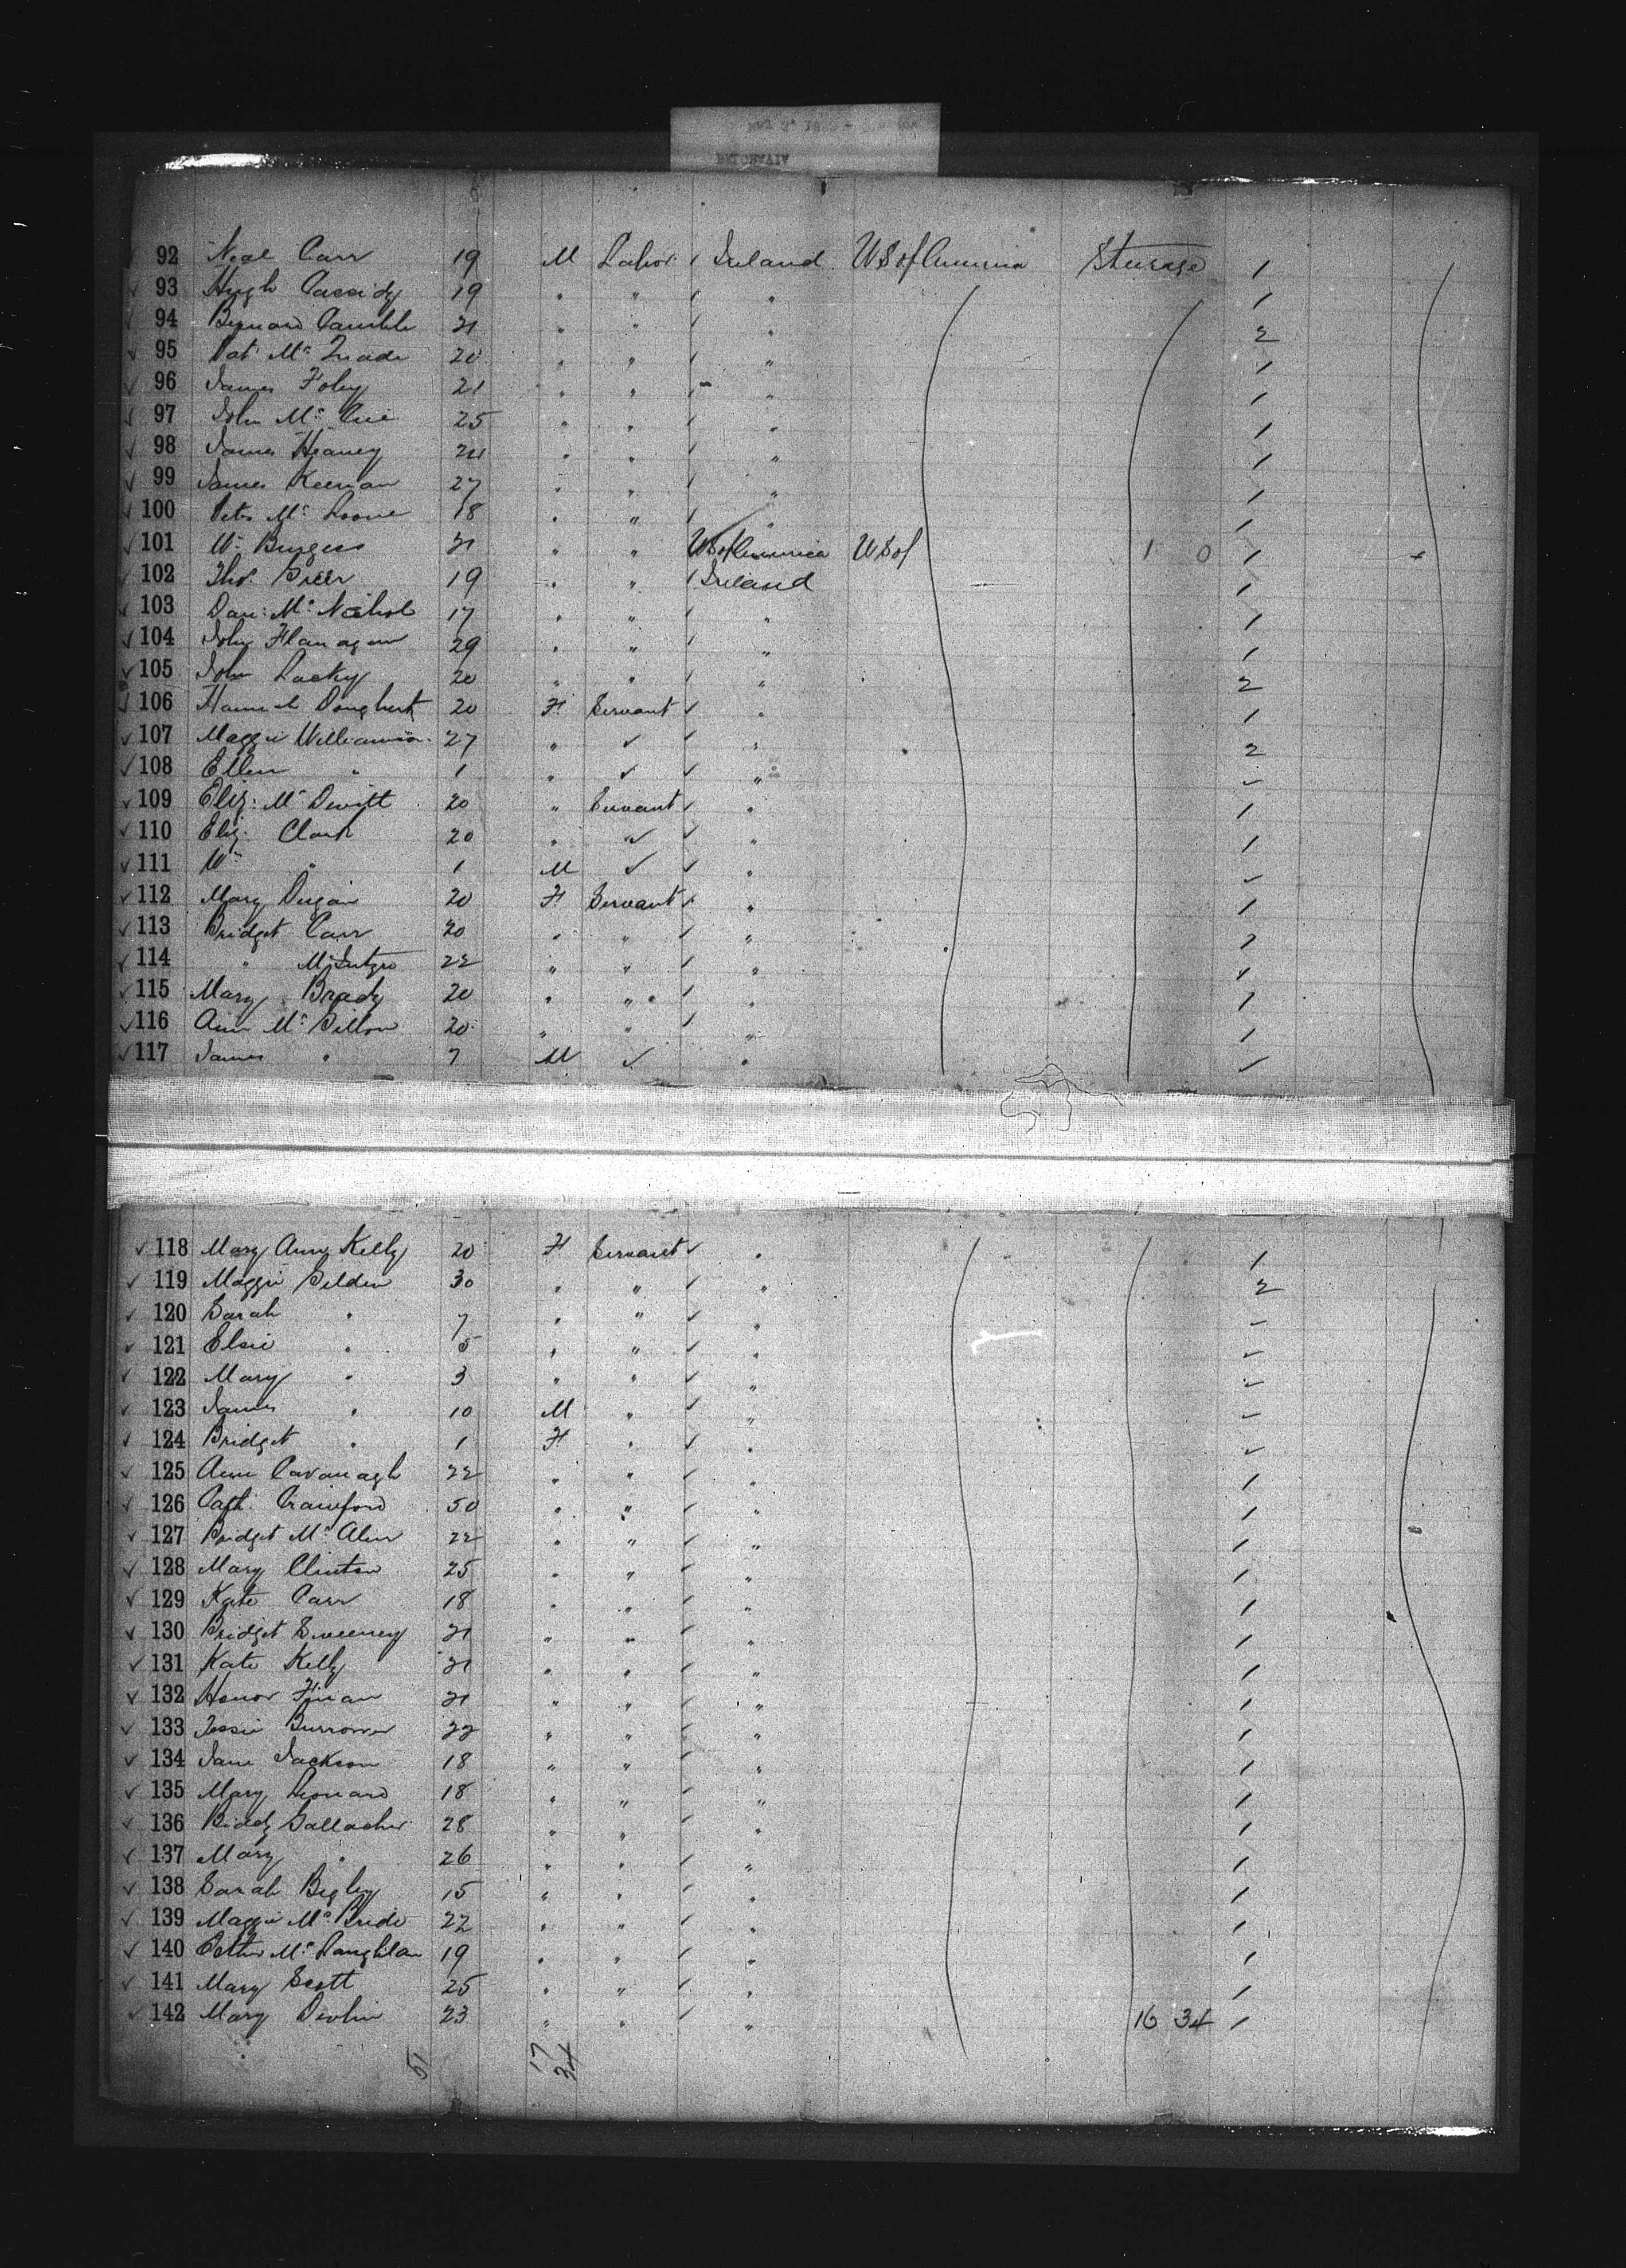 92 Neal Carr 19 M Labor / Ireland U S of America Steerage 1
93 Hugh Cassidy 19 " " / " 1
94 Bernard 21 " " / " 2
95 Pat Mc 20 " " / " 1
96 James Foley 21 " " / " 1
97 John Mc Cue 25 " " / " 1
98 James Heaney " " / " 1
99 James Keenan 27 " " / " 1
100 Peter Mc Loone 18 " " / " 1
101 Wm Burgess 21 " " U S of America U S of 1 0 1 +
102 Thos Greer 19 " " / Ireland 1
103 Dan: Mc Nichol 17 " " / " 1
104 John Flanagan 29 " " / " 1
105 John Lacky 20 " " / " 2
106 Hannah Doughert 20 F Servant ✓ " 1
107 Maggie Williamson 27 " ✓ ✓ " 2
108 Ellen " 1 " ✓ ✓ " ✓
109 Eliz: Mc Devitt 20 " Servant ✓ " 1
110 Eliz: Clark 20 " "✓ ✓ " 1
111 Wm " 1 M ✓ ✓ " ✓
112 Mary Dugan 20 F Servant ✓ " 1
113 Bridget Carr 20 " " / " 1
114 " 22 " " / " 1
115 Mary Brady 20 " " / " 1
116 Ann Mc 20 " " / " 1
117 James " 7 M ✓ " ✓
118 Mary Ann Kelly 20 F Servant ✓ " 1
119 Maggie 30 " " ✓ " 2
120 Sarah " 7 " " ✓ " ✓
121 Elsie " 5 " " ✓ " ✓
122 Mary " 3 " " ✓ " ✓
123 James " 10 M " ✓ " ✓
124 Bridget " 1 F " ✓ " ✓
125 Ann Cavanagh 22 " " / " 1
126 Cath: Crawford 50 " " / " 1
127 Bridget Mc 22 " " / " 1
128 Mary Clinton 25 " " / " 1
129 Kate Carr 18 " " / " 1
130 Bridget Sweeney 21 " " / " 1
131 Kate Kelly 21 " " / " 1
132 Honor Finan 21 " " / " 1
133 Jessie Burrows 22 " " / " 1
134 Jane Jackson 18 " " / " 1
135 Mary Leonard 18 " " / " 1
136 Biddy Gallacher 28 " " " 1
137 Mary " 26 " " / " 1
138 Sarah Begley 15 " " / " 1
139 Maggie Mc Bride 22 " " / " 1
140 Mc Laughlan 19 " " / " 1
141 Mary Scott 25 " " / " 1
142 Mary Devlin 23 " " / " 16 34 1
51 17
34